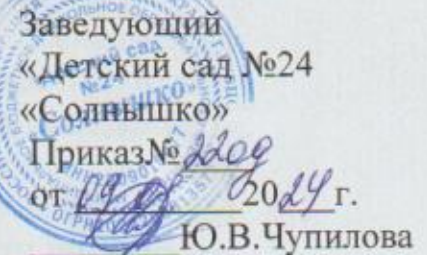 Заведующий
«Детский сад №24
«Солнышко»
Приказ№ 220д
от 09 20 24 г.
Ю.В.Чупилова